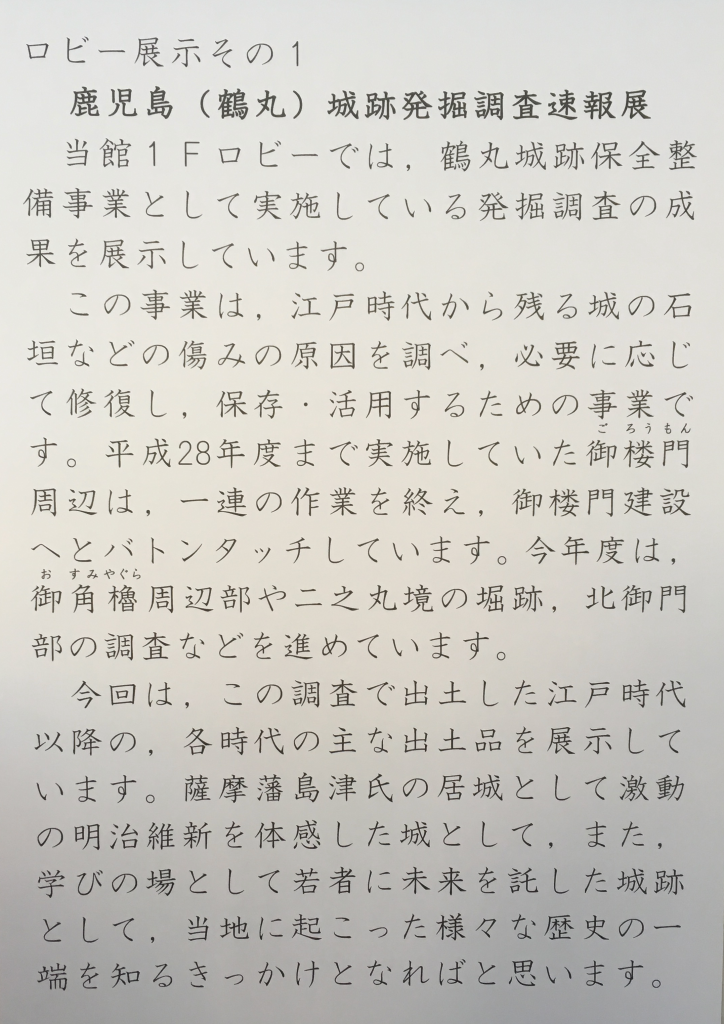 ロビー展示その1
鹿児島（鶴丸）城跡発掘調査速報展
当館1Fロビーでは，鶴丸城跡保全整
備事業として実施している発掘調査の成
果を展示しています。
この事業は，江戸時代から残る城の石
垣などの傷みの原因を調べ，必要に応じ
て修復し，保存・活用するための事業で
ごろうもん
す。平成28年度まで実施していた御楼門
周辺は，一連の作業を終え，御楼門建設
へとバトンタッチしています。今年度は，
おすみやぐら
御角櫓周辺部や二之丸境の堀跡，北御門
部の調査などを進めています。
今回は，この調査で出土した江戸時代
以降の，各時代の主な出土品を展示して
います。薩摩藩島津氏の居城として激動
の明治維新を体感した城として，また，
学びの場として若者に未来を託した城跡
として，当地に起こった様々な歴史の一
端を知るきっかけとなればと思います。